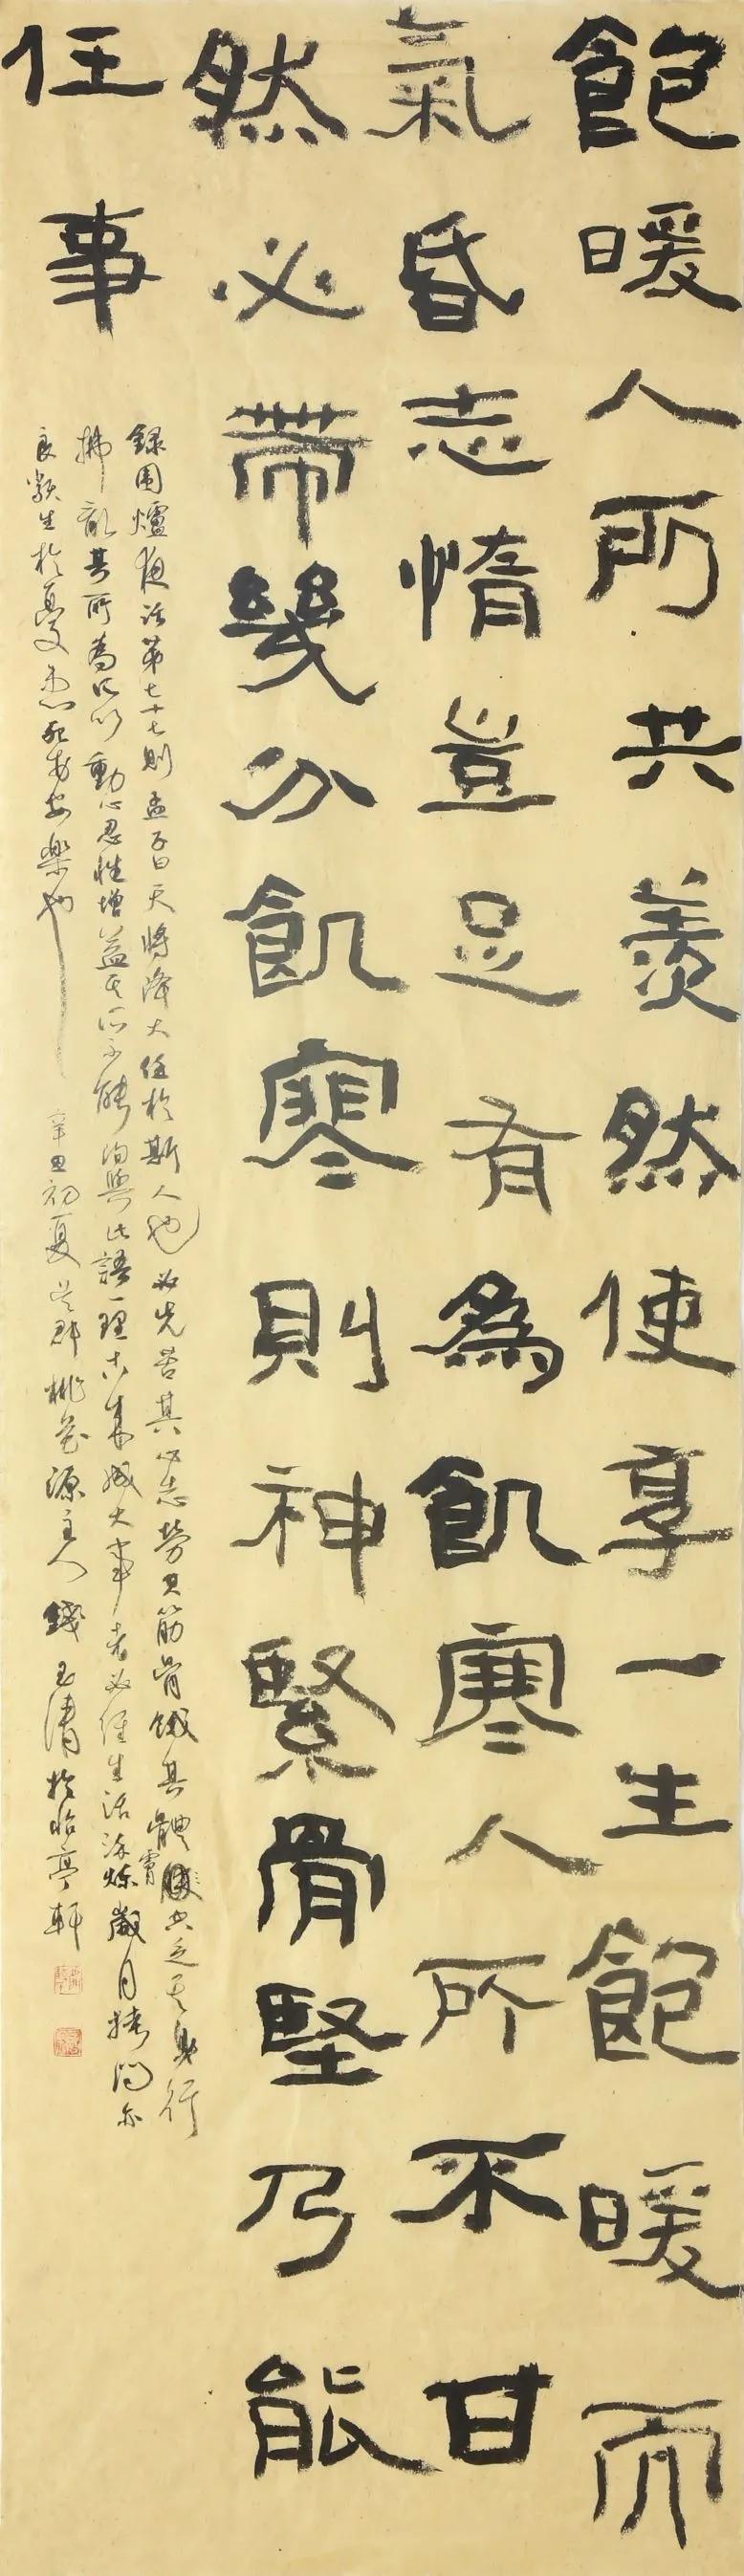 飽暖人所共羨然使享一生飽暖而
氣昏志惰豈足有為飢寒人所不甘
然必帶幾分飢寒則神緊骨堅乃能
任事
錄圍爐夜話第七十七則孟子曰天將降大任於斯人也必先苦其心志勞其筋骨餓其體膚空乏其身行
拂亂其所為所以動心忍性增益其所不能均與此語一理古來成大事者必經生活淬煉歲月拷問亦
良類生於憂患死於安樂也
辛丑初夏 群桃花源主人錢玉清於怡亭軒